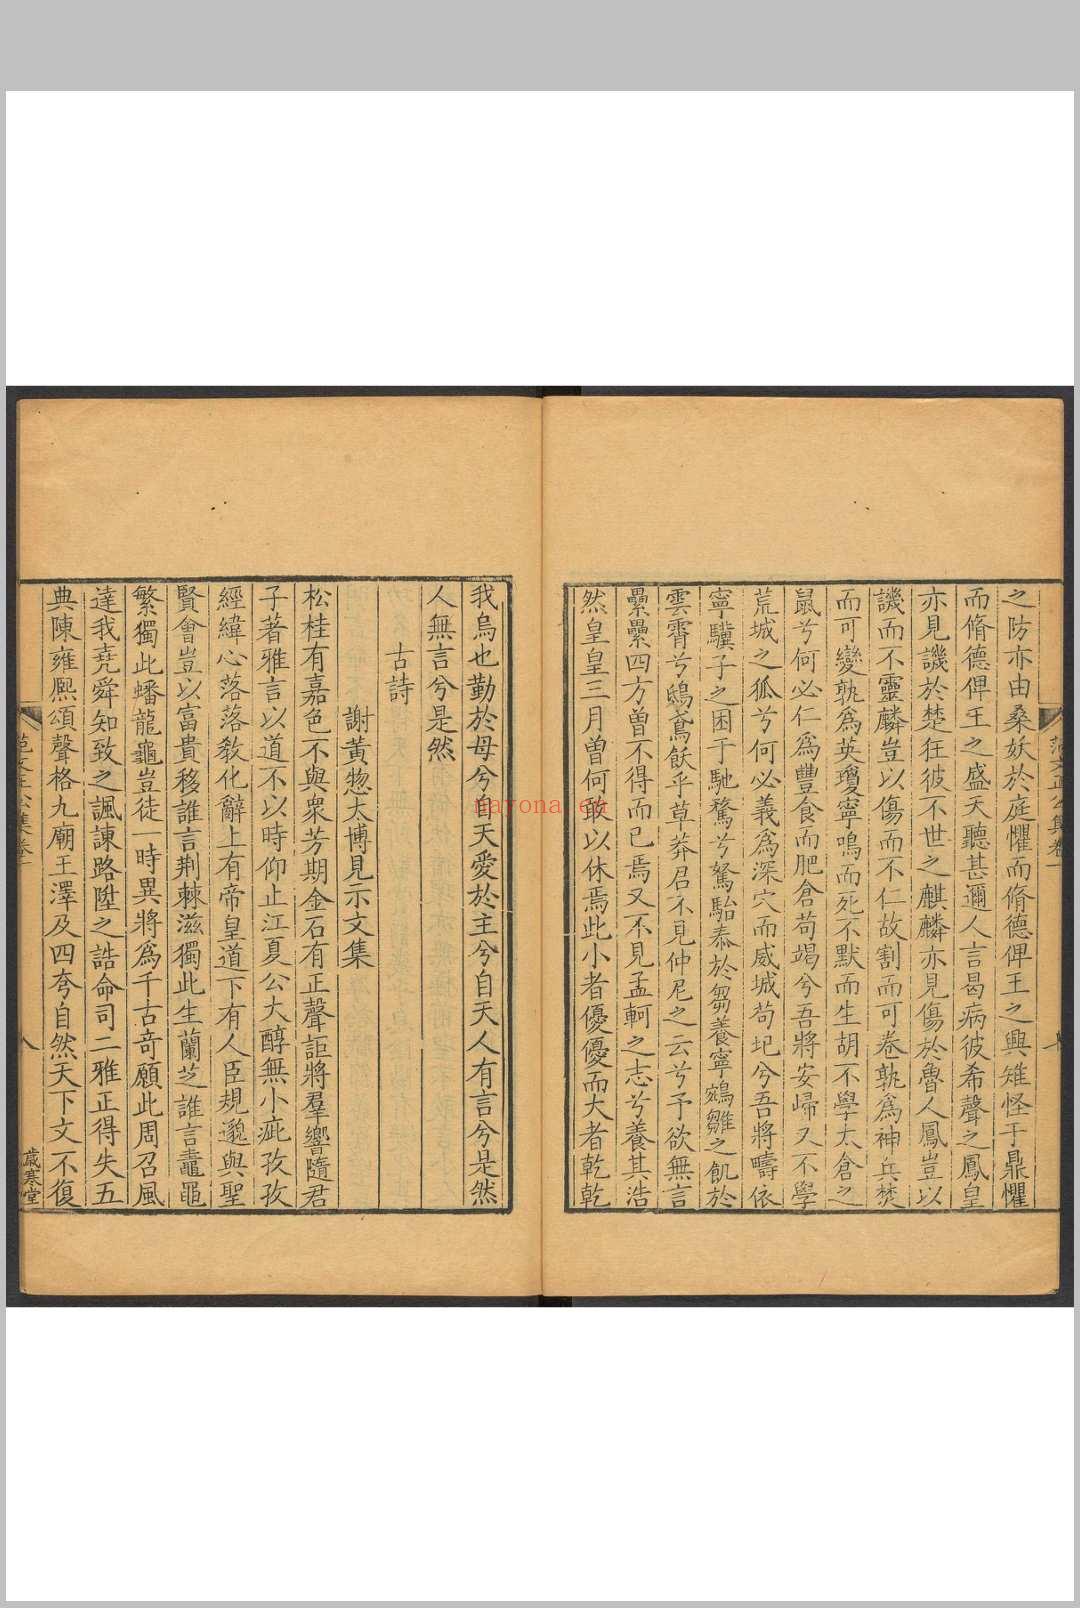 范文正公集卷一
之防亦由桑妖於庭懼而脩德俾王之興雉怪于鼎懼
而脩德俾王之盛天聽甚邇人言曷病彼希聲之鳳皇
亦見譏於楚狂彼不世之麒麟亦見傷於魯人鳳豈以
譏而不靈麟豈以傷而不仁故割而可卷孰爲神兵焚
而可變孰爲英瓊寧鳴而死不默而生胡不學太倉之
鼠兮何必仁爲豐食而肥倉苟竭兮吾將安歸又不學
荒城之狐兮何必義爲深穴而威城苟圮兮吾將疇依
寧驥子之困于馳騖兮駑駘泰於芻養寧鵷雛之飢於
雲霄兮鴟鳶飫乎草莽君不見仲尼之云兮予欲無言
纍纍四方曽不得而已焉又不見孟軻之志兮養其浩
然皇皇三月曽何敢以休焉此小者優優而大者乾乾
我烏也勤於母兮自天愛於主兮自天人有言兮是然
人無言兮是然
古詩
謝黃惣太博見示文集
松桂有嘉色不與衆芳期金石有正聲詎將羣響隨君
子著雅言以道不以時仰止江夏公大醇無小疵孜孜
經緯心落落教化辭上有帝皇道下有人臣規邈與聖
賢會豈以富貴移誰言荆棘滋獨此生蘭芝誰言䵷黽
繁獨此蟠龍龜豈徒一時異將爲千古竒願此周召風
達我堯舜知致之諷諌路陞之誥命司二雅正得失五
典陳雍熈頌聲格九廟王澤及四夸自然天下文不復
范文正公集卷一
八
歲寒堂
nayona.cn